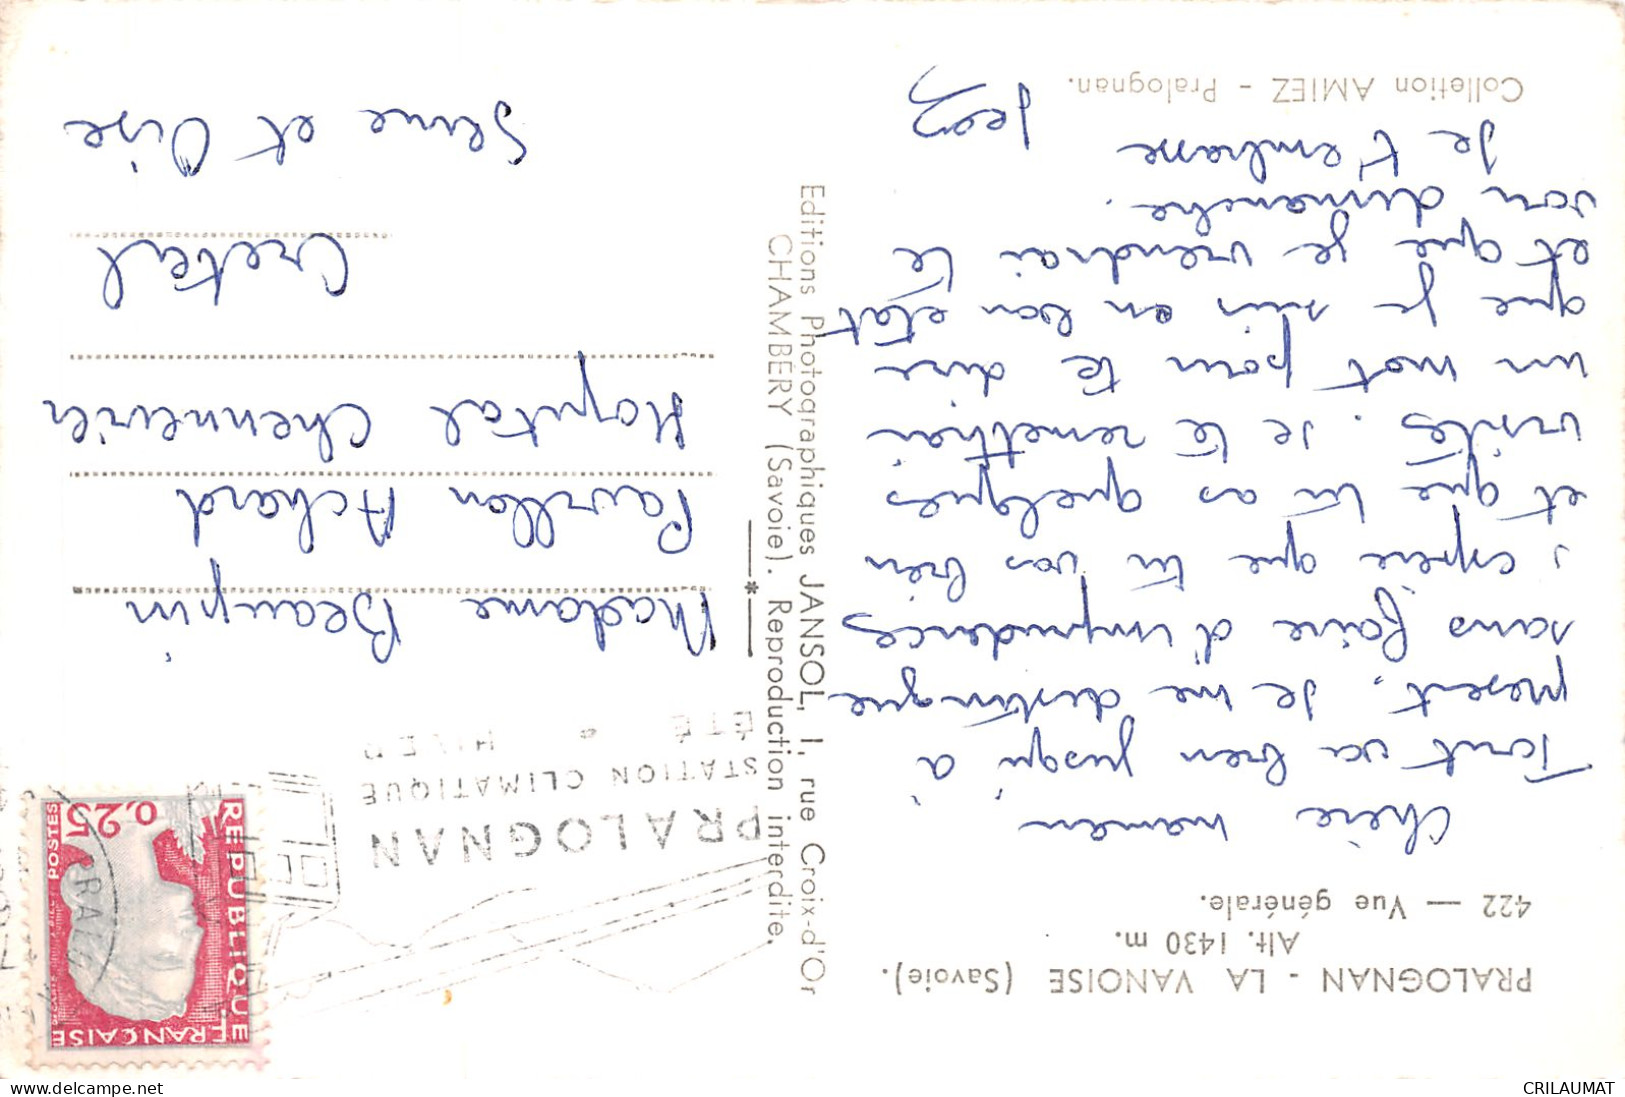 PRALOGNAN - LA VANOISE (Savoie).
Alt. 1430 m.
422 — Vue générale.
Chère maman
Tout va bien jusqu'à
present. Je me distingue
sans faire d'imprudences
j'espère que tu vas bien
et que tu as quelques
visites. Je te remettrai
un mot pour te dire
que je suis en bon etat
et que je viendrai te
voir dimanche.
Je t'embrasse
Collection AMIEZ - Pralognan.
Editions Photographiques JANSOL, 1, rue Croix-d'Or
CHAMBÉRY (Savoie). Reproduction interdite.
PRALOGNAN
STATION CLIMATIQUE
ÉTÉ HIVER
RÉPUBLIQUE
FRANÇAISE
0,25
POSTES
Madame Beaupin
Pavillon Achard
Hopital Chennevier
Creteil
Seine et Oise
www.delcampe.net
CRILAUMAT